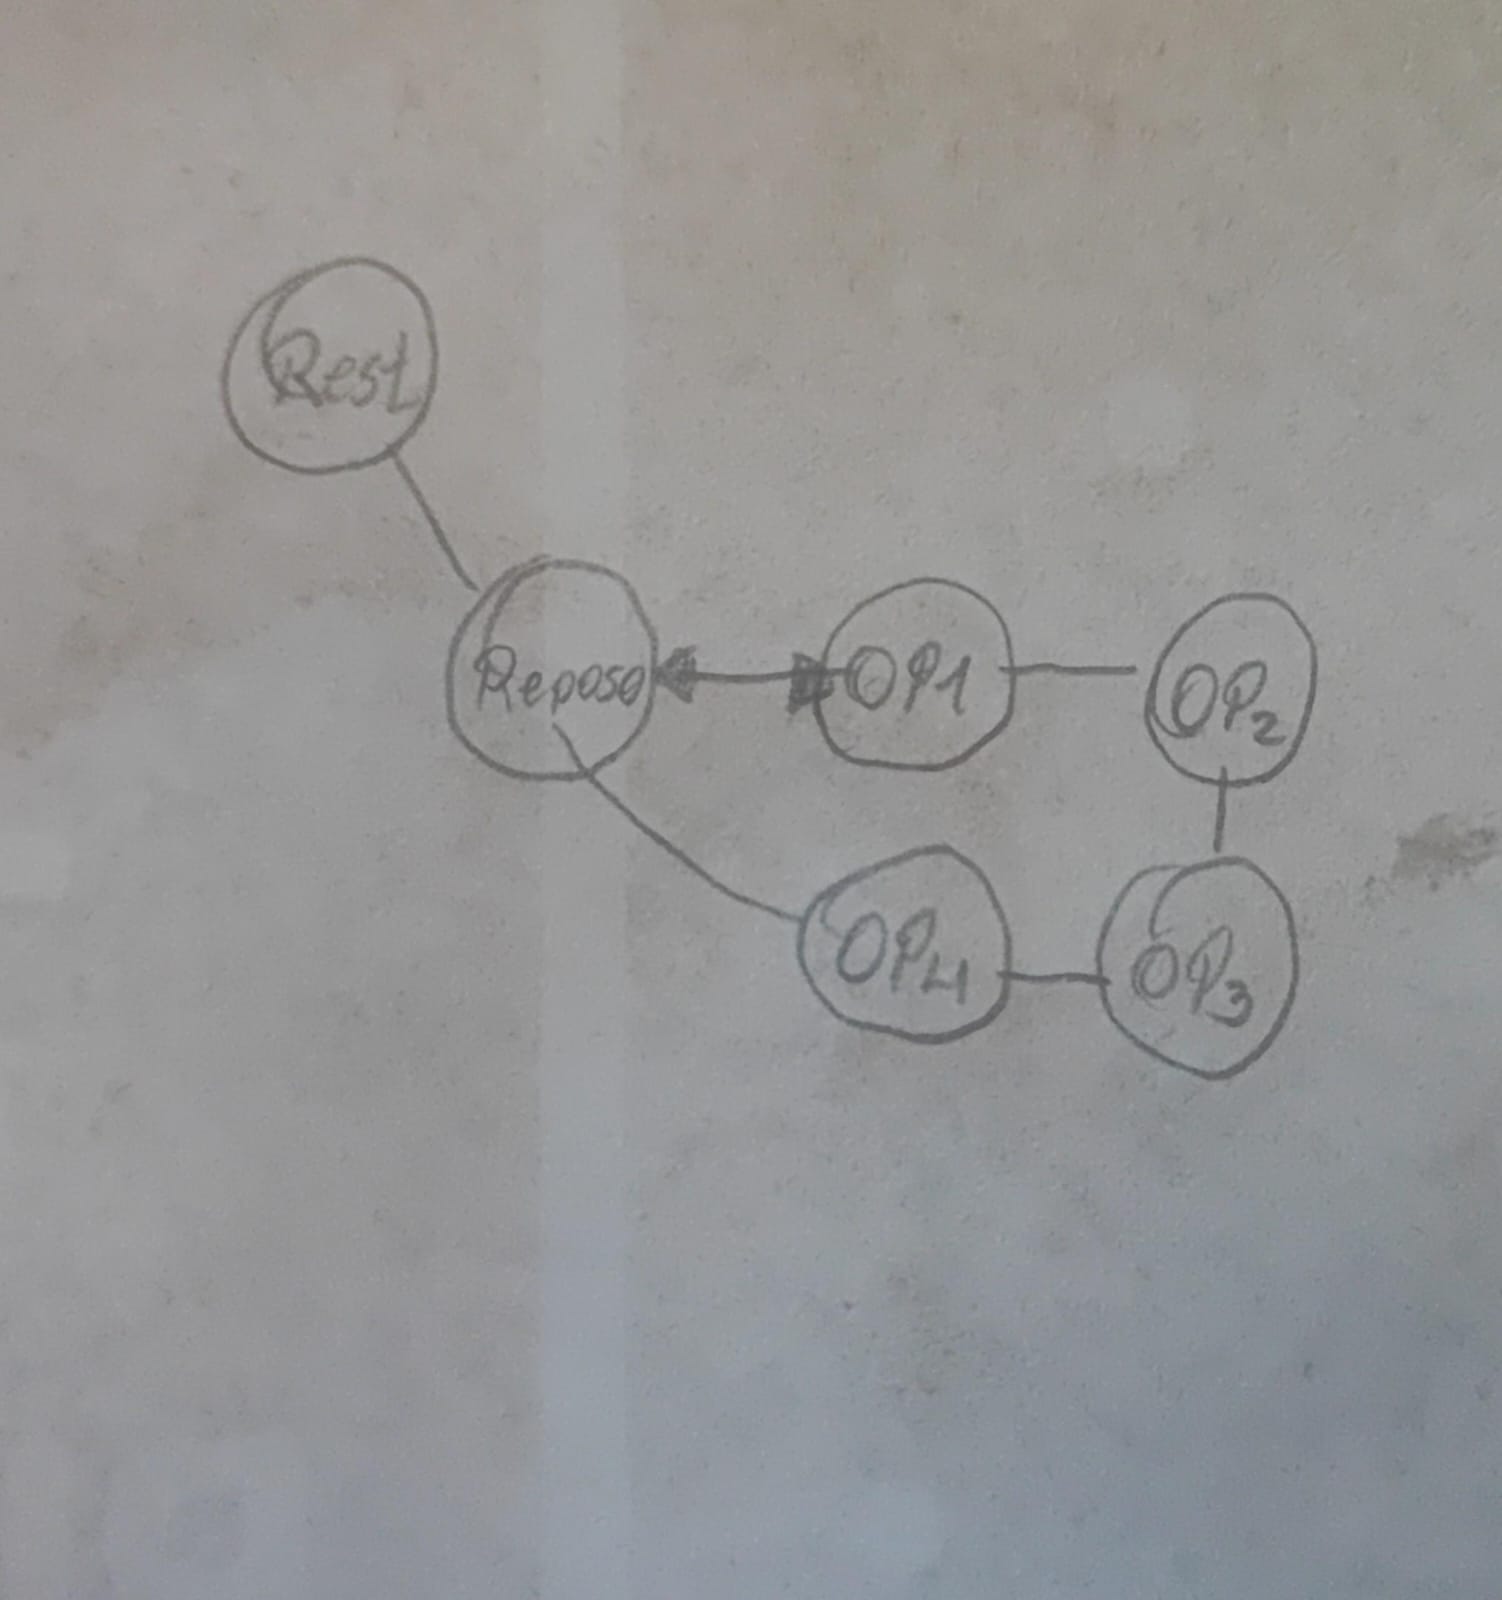 Rest
Reposo
OP1
OP2
OP3
OP4